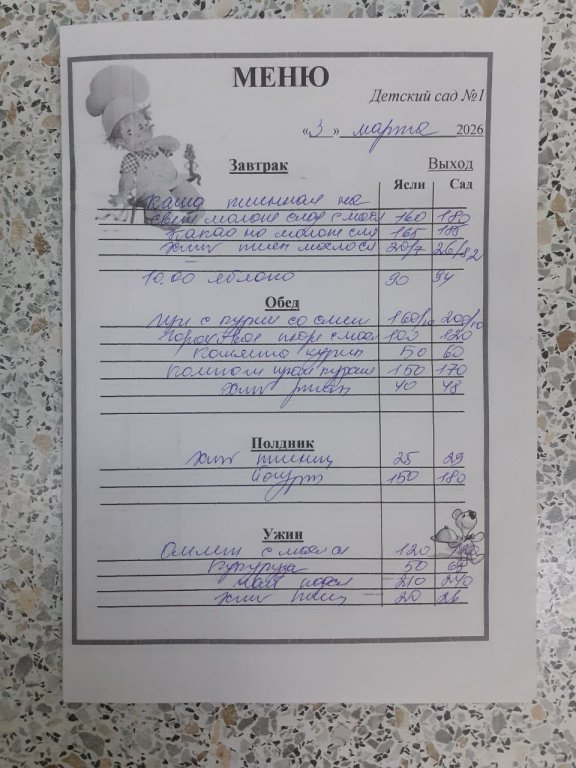 МЕНЮ
Детский сад №1
«3» марта 2026
Завтрак Выход
Ясли Сад
каша пшенная на
молоке 160 180
какао на молоке 165
хлеб пшен маслося 20/7
10.00 яблоко 90 94
Обед
щи с курин со смет 160/10 200/10
Гороховое пюре с масл 100 120
котлета курин 50 60
компот 150 170
хлеб ржан 40 48
Полдник
хлеб пшениц 25 29
йогурт 150 180
Ужин
Омлет с масл 120
кукуруза 50
чай 210 240
хлеб пшениц 20 26